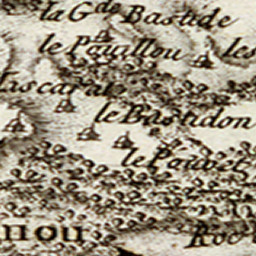 la G.de Bastide
le Pouillou les
Cascarat
le Bastidon
nou Roc